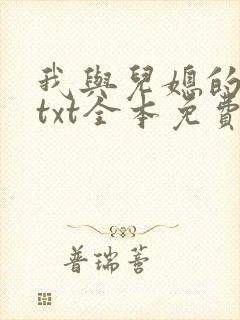 我與兒媳的
txt全本免費
普瑞蒈